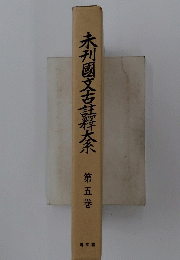 未刊國文古註釈大系
第五巻